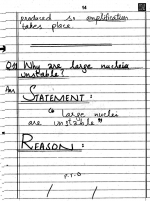 14
produced so amplification
takes place.
Why are large nucleis
unstable?
Ans
STATEMENT:
" Large nuclei
are unstable "
REASON:
P.T.O